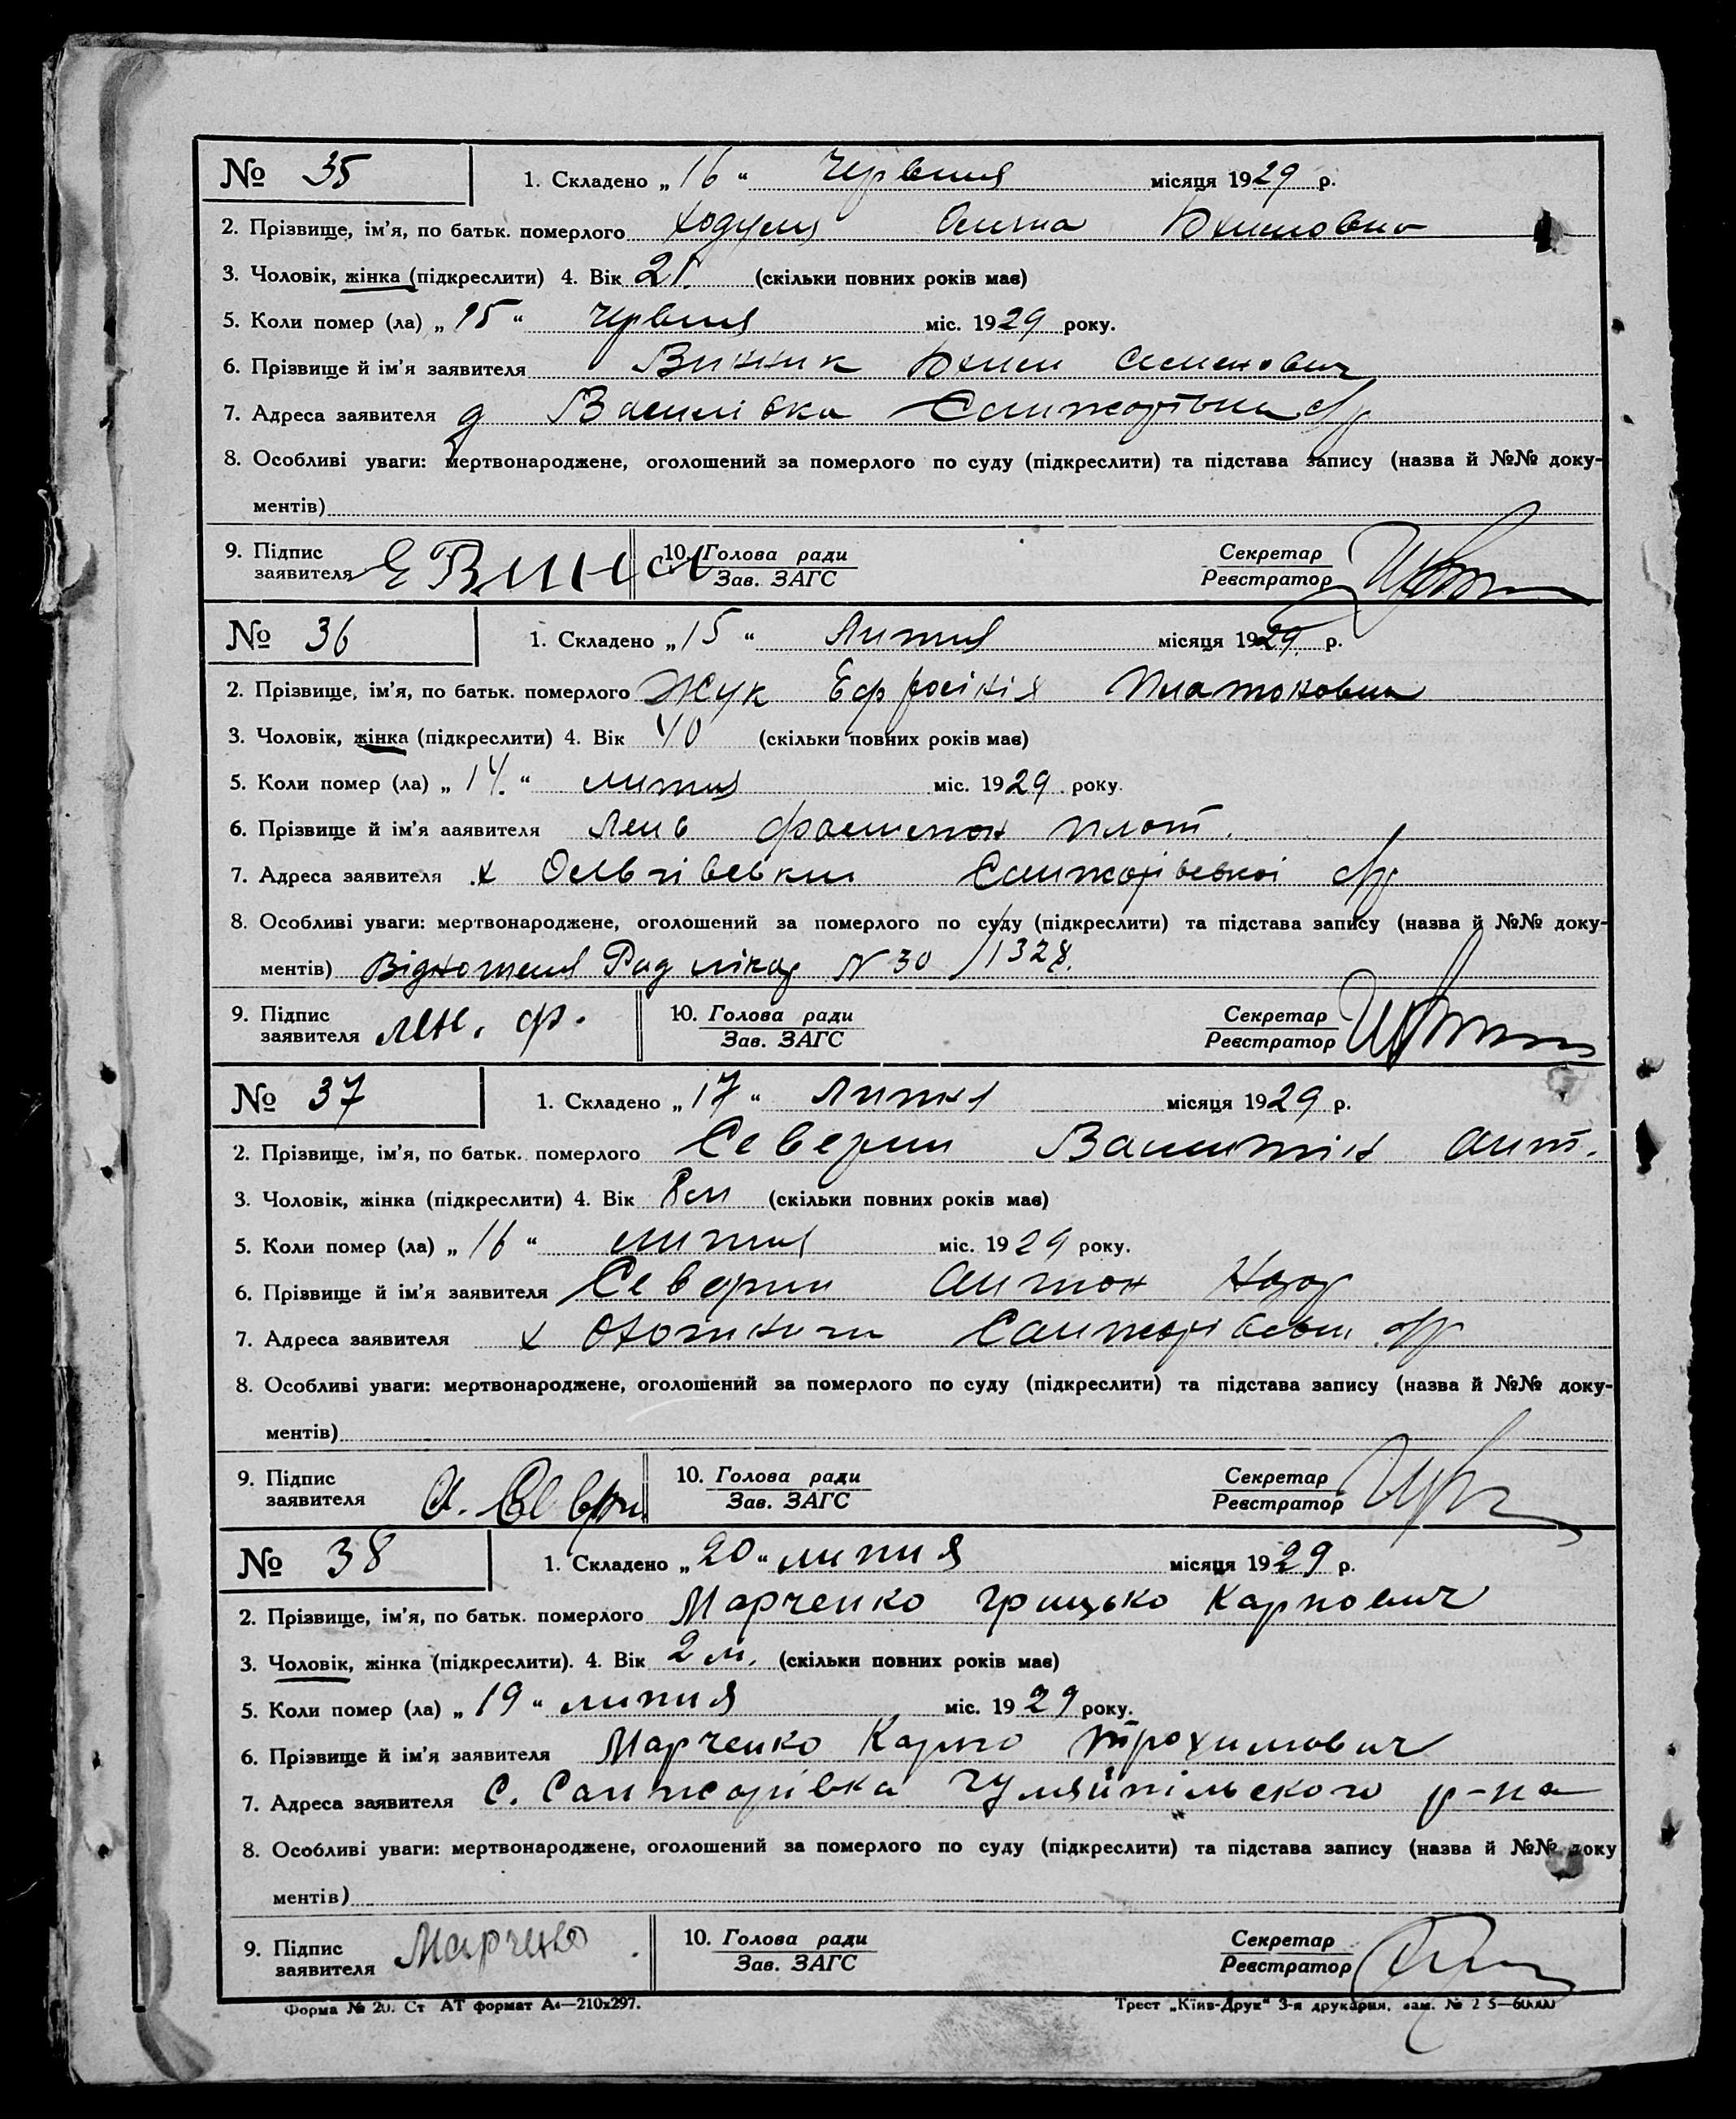 № 35 1. Складено „16“ Червня місяця 1929 р.
2. Прізвище, ім'я, по батьк. померлого Ходуля
3. Чоловік, жінка (підкреслити) 4. Вік 21. (скільки повних років має)
5. Коли помер (ла) „15“ Червня міс. 1929 року.
6. Прізвище й ім'я заявителя Винник Юхим Семенович
7. Адреса заявителя д Василівка
8. Особливі уваги: мертвонароджене, оголошений за померлого по суду (підкреслити) та підстава запису (назва й №№ доку-
ментів)
9. Підпис 10. Голова ради Секретар
заявителя Зав. ЗАГС Реєстратор
№ 36 1. Складено „15“ Липня місяця 1929 р.
2. Прізвище, ім'я, по батьк. померлого Жук Ефросінія Платоновна
3. Чоловік, жінка (підкреслити) 4. Вік 40 (скільки повних років має)
5. Коли помер (ла) „14.“ липня міс. 1929 року.
6. Прізвище й ім'я заявителя плат.
7. Адреса заявителя х Санжарівської с/р
8. Особливі уваги: мертвонароджене, оголошений за померлого по суду (підкреслити) та підстава запису (назва й №№ доку-
ментів) Відношеня Рад лікар N 30 /1328.
9. Підпис 10. Голова ради Секретар
заявителя Зав. ЗАГС Реєстратор
№ 37 1. Складено „17“ Липня місяця 1929 р.
2. Прізвище, ім'я, по батьк. померлого Северин Валентін Ант.
3. Чоловік, жінка (підкреслити) 4. Вік 8 м (скільки повних років має)
5. Коли помер (ла) „16“ липня міс. 1929 року.
6. Прізвище й ім'я заявителя Северин Антон Назар
7. Адреса заявителя х Охотники с/р
8. Особливі уваги: мертвонароджене, оголошений за померлого по суду (підкреслити) та підстава запису (назва й №№ доку-
ментів)
9. Підпис 10. Голова ради Секретар
заявителя Зав. ЗАГС Реєстратор
№ 38 1. Складено „20“ липня місяця 1929 р.
2. Прізвище, ім'я, по батьк. померлого Марченко Грицько Карпович
3. Чоловік, жінка (підкреслити). 4. Вік 2 м. (скільки повних років має)
5. Коли помер (ла) „19“ липня міс. 1929 року.
6. Прізвище й ім'я заявителя Марченко Карпо Трохимович
7. Адреса заявителя С. Санжарівка Гуляйпільского р-на
8. Особливі уваги: мертвонароджене, оголошений за померлого по суду (підкреслити) та підстава запису (назва й №№ доку
ментів)
9. Підпис Марченко 10. Голова ради Секретар
заявителя Зав. ЗАГС Реєстратор
Форма № 20. Ст АТ формат А4—210х297. Трест „Київ-Друк“ 3-я друкарня,